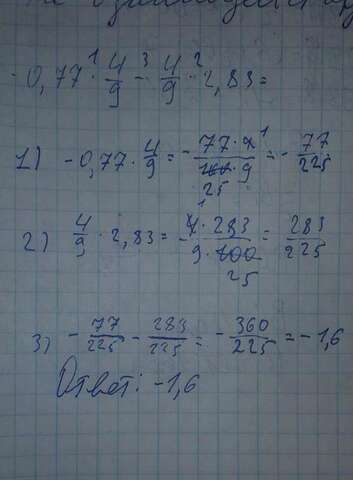 -0,77 ·¹ 4/9 -³ 4/9 ·² 2,83 =
1) -0,77 · 4/9 = - 77·4¹/100·9 25 = - 77/225
2) 4/9 · 2,83 = - ¹4·283/9·100 25 = 283/225
3) - 77/225 - 283/225 = - 360/225 = -1,6
Ответ: -1,6